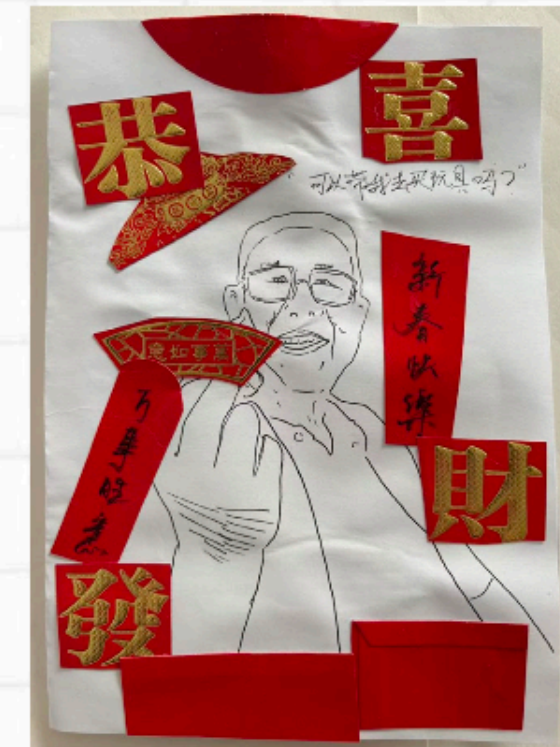 恭
喜
“可以带我去买玩具吗？”
新春快樂
萬事如意
万事胜意
財
發